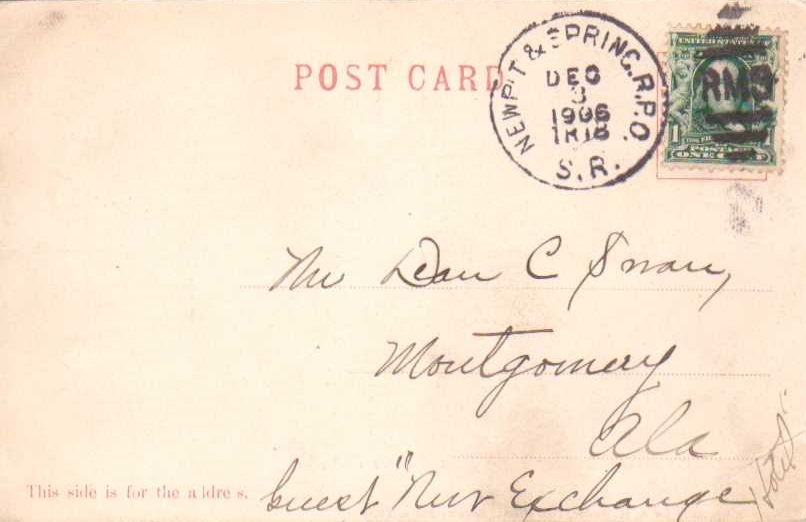 POST CARD
NEWP'T & SPRING. R.P.O.
DEC
3
1906
TR18
S.R.
RMS
UNITED STATES OF AMERICA
1 1
POSTAGE
ONE CENT
Mr Dan C Swan,
Montgomery
Ala
Guest "New Exchange
Hotel"
This side is for the address.